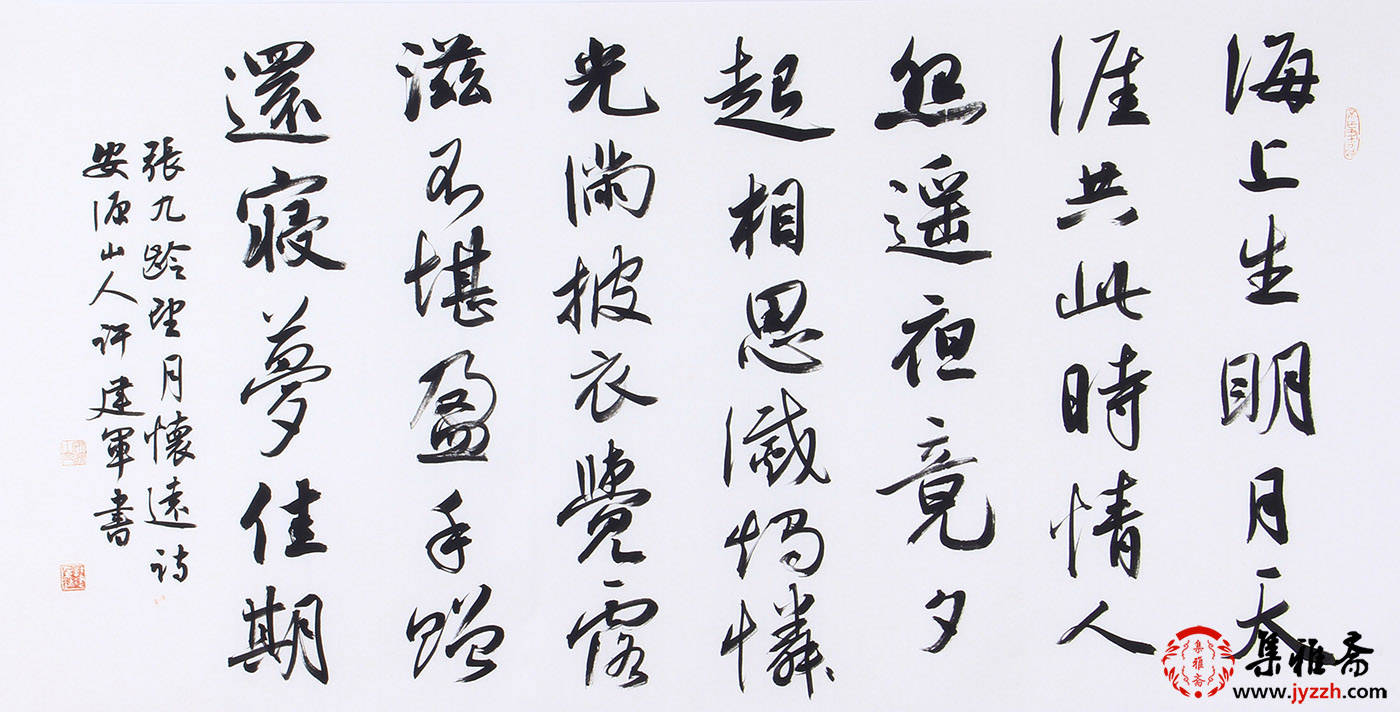 海上生明月天
涯共此時情人
怨遥夜竟夕
起相思滅燭憐
光滿披衣覺露
滋不堪盈手贈
還寢夢佳期
張九齡望月懷遠詩
安源山人許建軍書
集雅斋
集雅斋
www.jyzzh.com